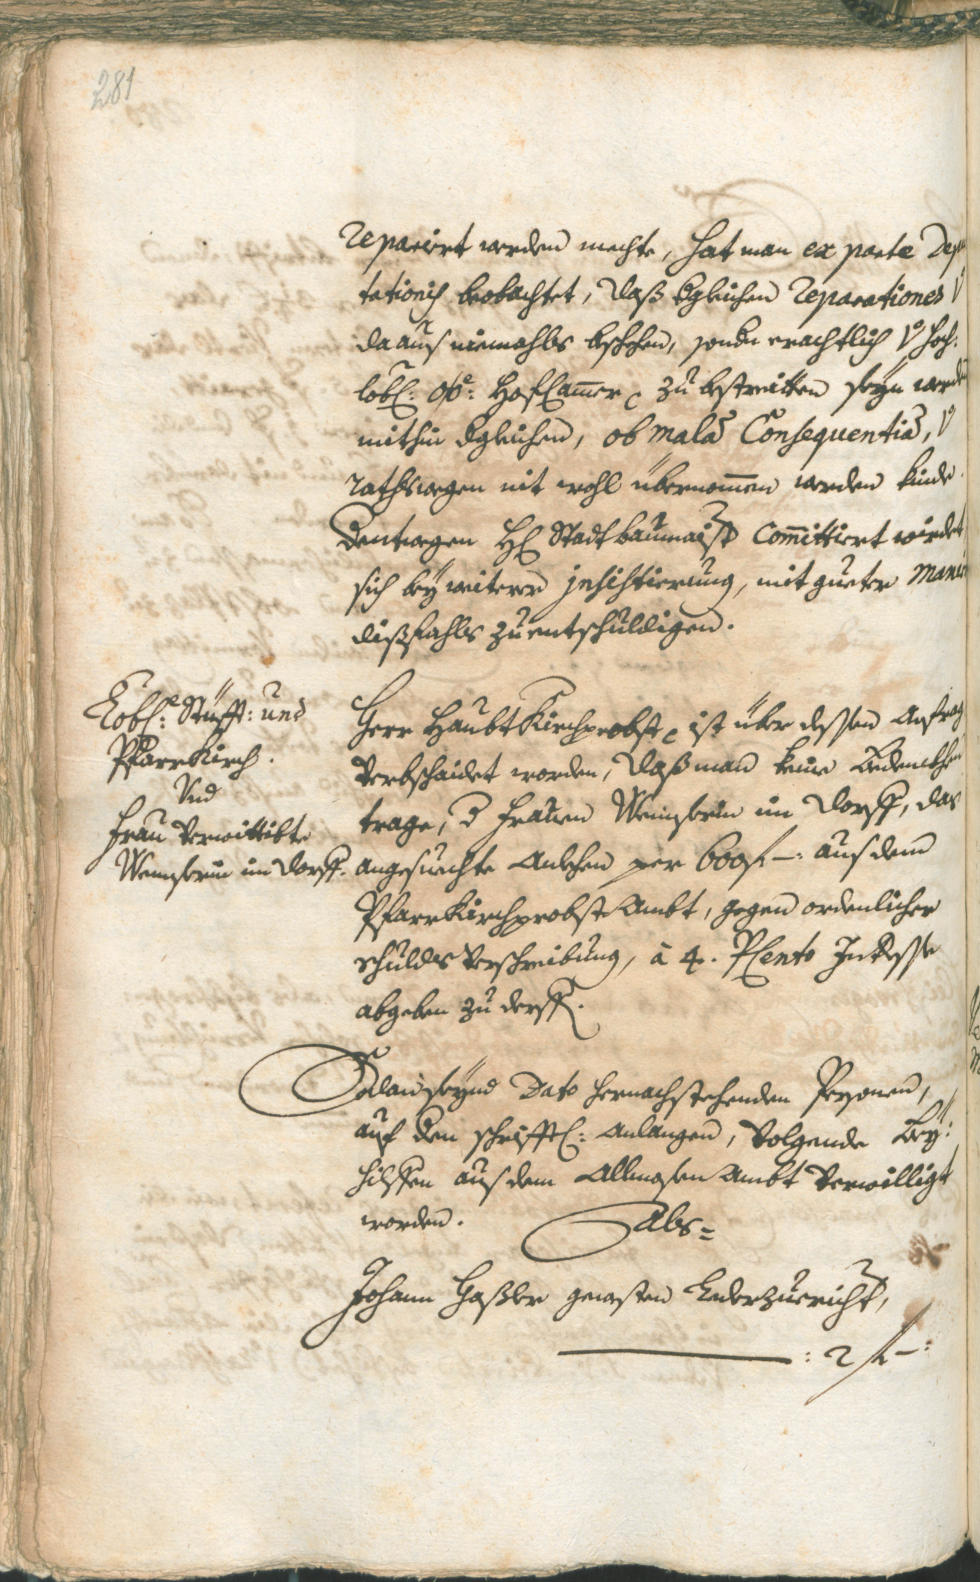 281
repariert werden mechte, hat man ex parte Dep
tationis beobachtet, daß dgleichen Reparationes V
daauß niemahls bschehen, sonden erachtlich V hoch:
lobl: O:Ö: Hof Camer zu bstreitten seyn werd
mithin dgleichen, ob mala Consequentia, V
rathswegen nit wohl übernommen werden kinde.
dentwegen H Stadtbaumaister Committiert wirdet
sich bey weiterer jnsistierung, mit gueter Manier
dißfahls zuentschuldigen.
Lobl: Stüfft: und
PfarrKirch.
Und
Frau Verwittibte
im Dorff.
Herr HaubtKirchprobst ist über dessen Anfrag
Verbschaidet worden, daß man keine Bedenkhen
trage, d Frauen im Dorff, das
angesuechte Anlehen per 600 f –: aus dem
PfarrKirchprobst Ambt, gegen ordenlicher
schuldts Verschreibung, à 4. PCento Interesse
abgeben zu derffen.
Sodann seynd Dato hernachstehenden Persohnen,
auf den schrifftl: Anlangen, Volgende Bey:
hilffen aus dem Allmosen Ambt Verwilligt
worden. Als=
Johann Haßler gewesten Lederzuericht,
: 2 f –: